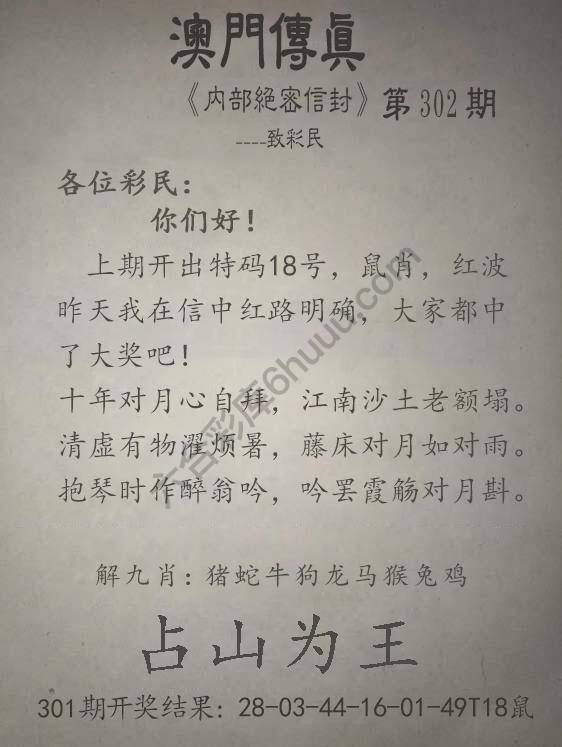 澳門傳真
《内部絕密信封》第302期
----致彩民
各位彩民：
你们好！
上期开出特码18号，鼠肖，红波
昨天我在信中红路明确，大家都中
了大奖吧！
十年对月心自拜，江南沙土老额塌。
清虚有物濯烦暑，藤床对月如对雨。
抱琴时作醉翁吟，吟罢霞觞对月斟。
六合彩库6huuu.com
解九肖：猪蛇牛狗龙马猴兔鸡
占山为王
301期开奖结果：28-03-44-16-01-49T18鼠